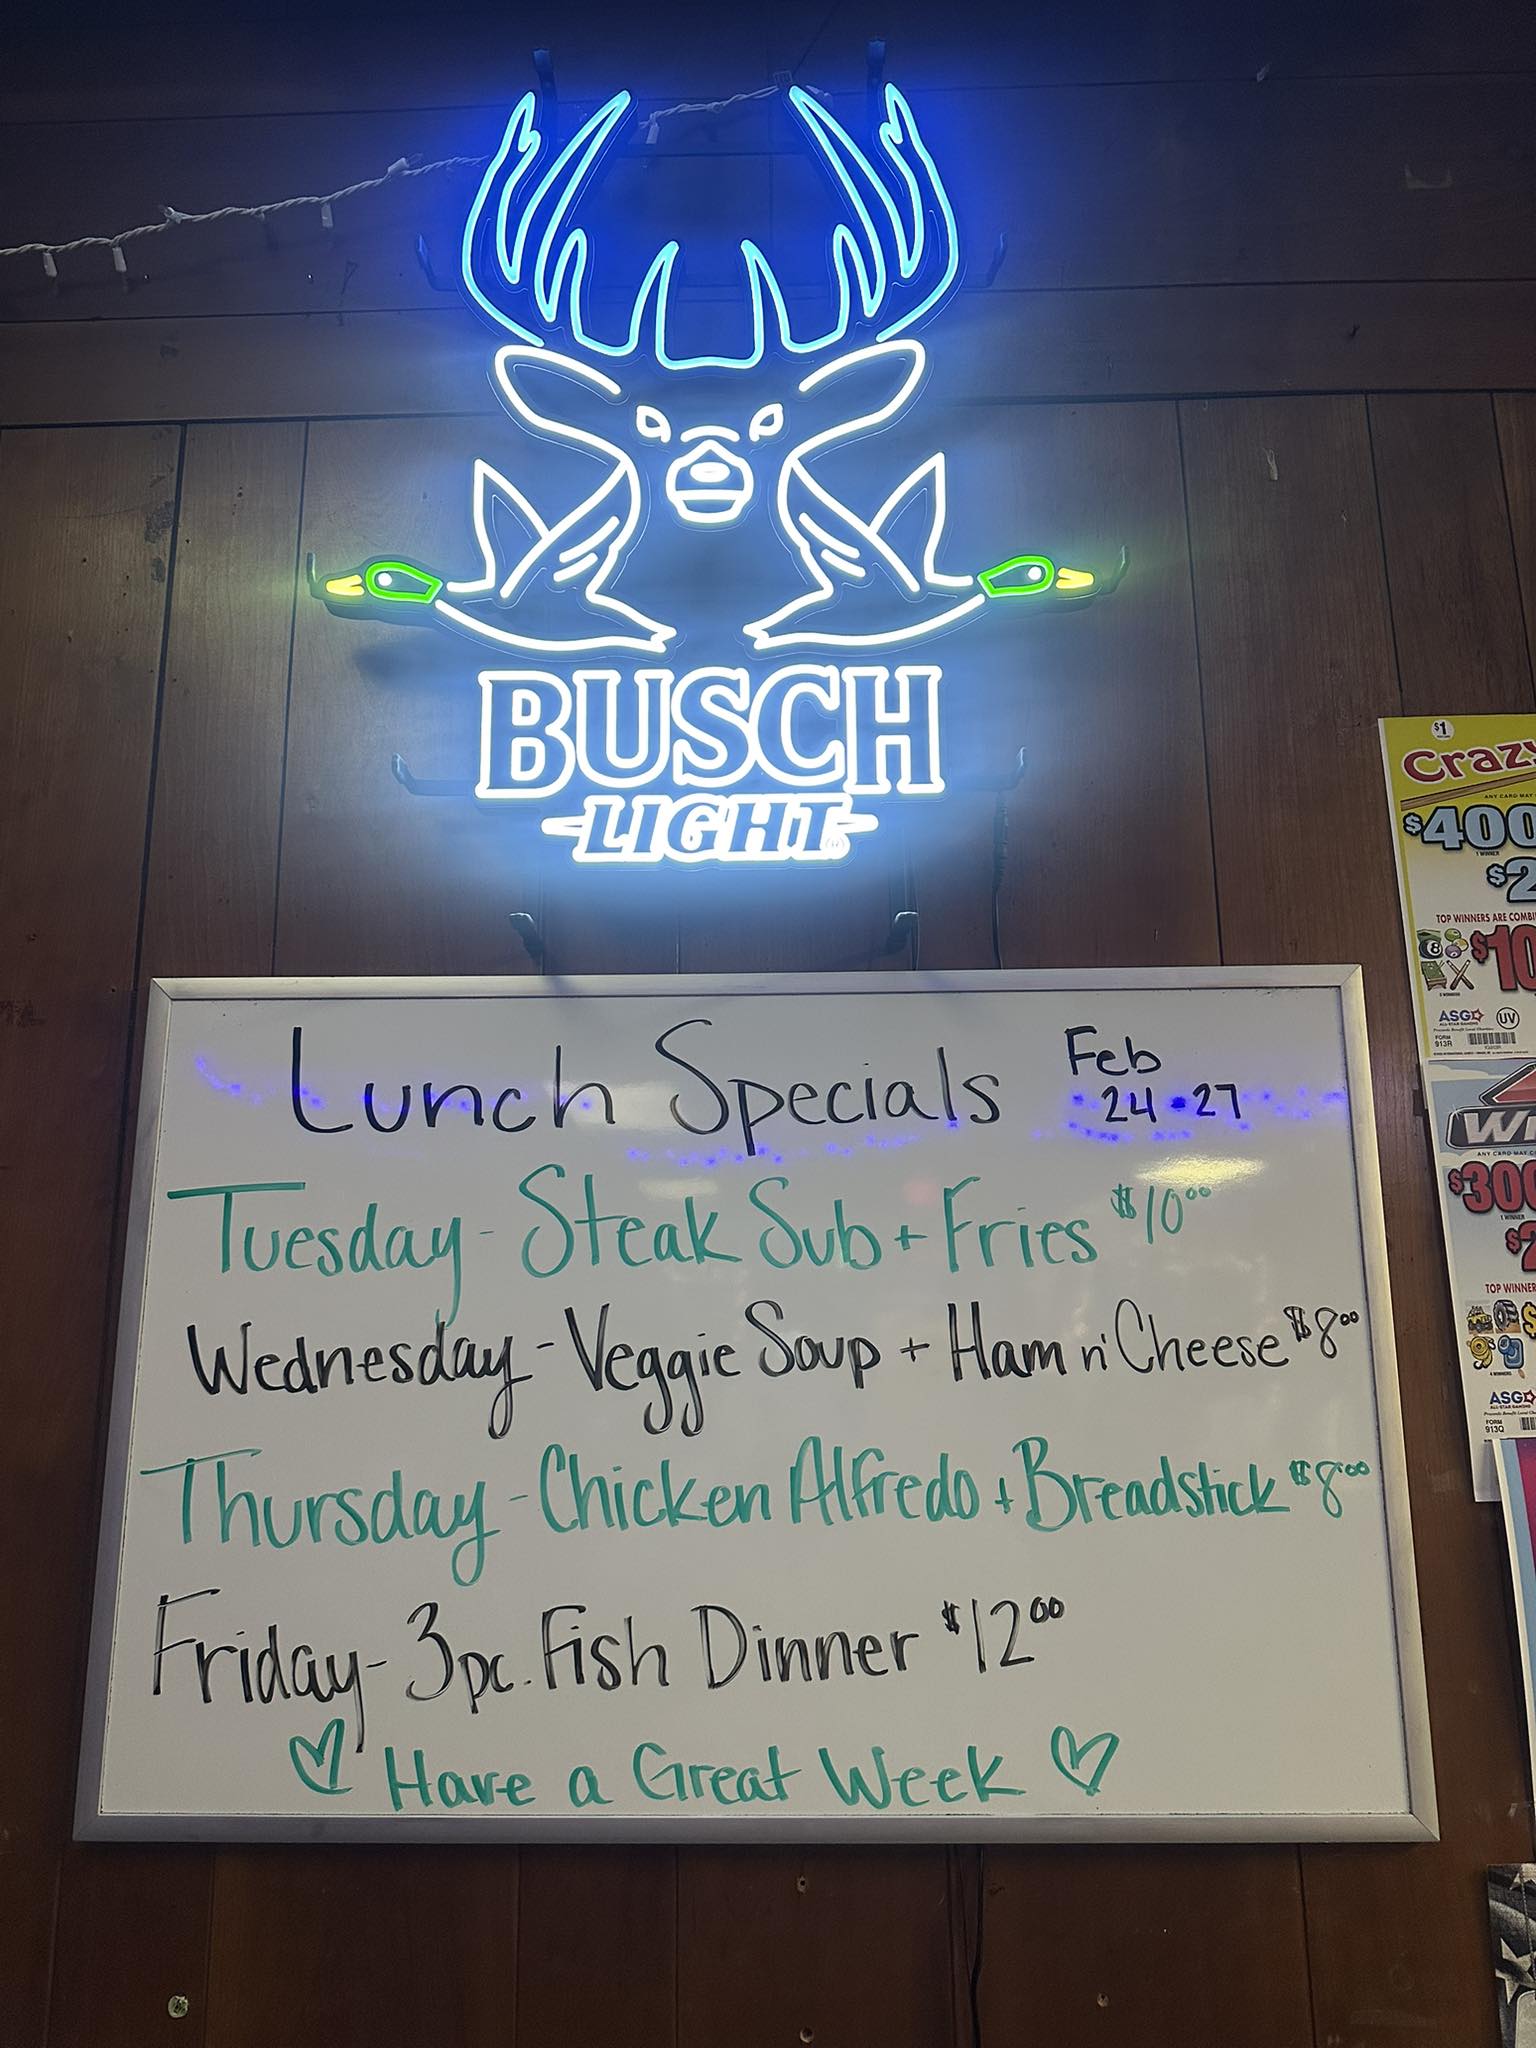 BUSCH
LIGHT
Lunch Specials
Feb
24-27
Tuesday - Steak Sub + Fries $10.00
Wednesday - Veggie Soup + Ham n' Cheese $8.00
Thursday - Chicken Alfredo + Breadstick $8.00
Friday - 3pc. Fish Dinner $12.00
♡ Have a Great Week ♡
$1
ANY CARD MAY
$400
1 WINNER
TOP WINNERS ARE
ASG
ALL-STAR GAMING
UV
FORM
913R
ANY CARD MAY
$300
1 WINNER
TOP WINNER
4 WINNERS
ASG
FORM
913Q